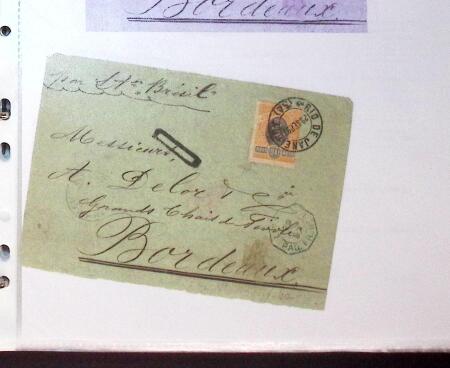 Bordeaux.
per Str Brésil
RIO DE JANE
Messieurs,
A. Delor & Cie
Grands Chais de
Bordeaux.